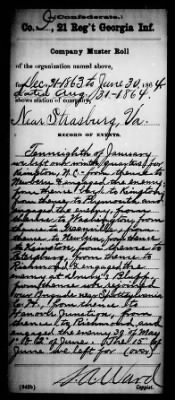 (Confederate.)
Co. , 21 Reg't Georgia Inf.
Company Muster Roll
of the organization named above,
for Dec. 31 1863 to June 30, 1864.
dated Aug. 31 - 1864.
above station of company,
Near Strasburg, Va.
RECORD OF EVENTS.
of January
we left our winter quarters for
Kingston, N.C. - from thence to
Newbern & engaged the enemy,
from thence back to Kingston,
from thence to Plymouth and
engaged the enemy, from
thence to Washington, from
thence to Greenville, from
thence to Newbern, from thence
to Kingston, from thence to
Petersburg, from thence to
Richmond & engaged the
enemy at Drury's Bluff,
from thence we rejoined
our Brigade near Spottsylvania
C.H., from thence to
Hanover Junction, from
thence to Richmond, and
engaged the enemy 30 of May
1st & 2 of June. The 15 of
June we left for (over)
S. A. Ward
Copyist.